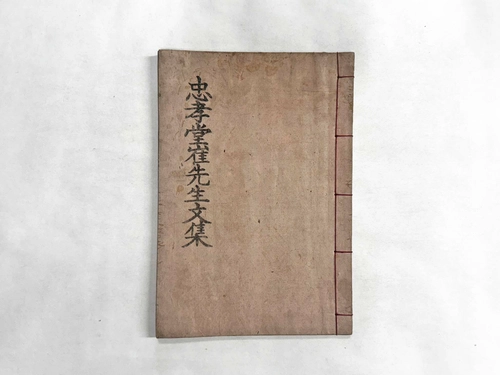 忠孝堂崔先生文集